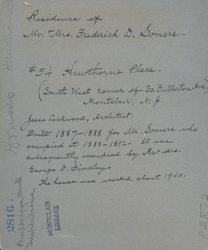 Residence of
Mr. & Mrs. Frederick D. Somers.
#54 Hawthorne Place.
(South West corner of So. Fullerton Ave.)
Montclair, N. J.
Jesse Lockwood, Architect.
Built 1887-1888 for Mr. Somers who
occupied it 1888-1892. It was
subsequently occupied by Mr & Mrs.
George D. Findlay.
The house was wrecked about 1960.
2816
MONTCLAIR
LIBRARY